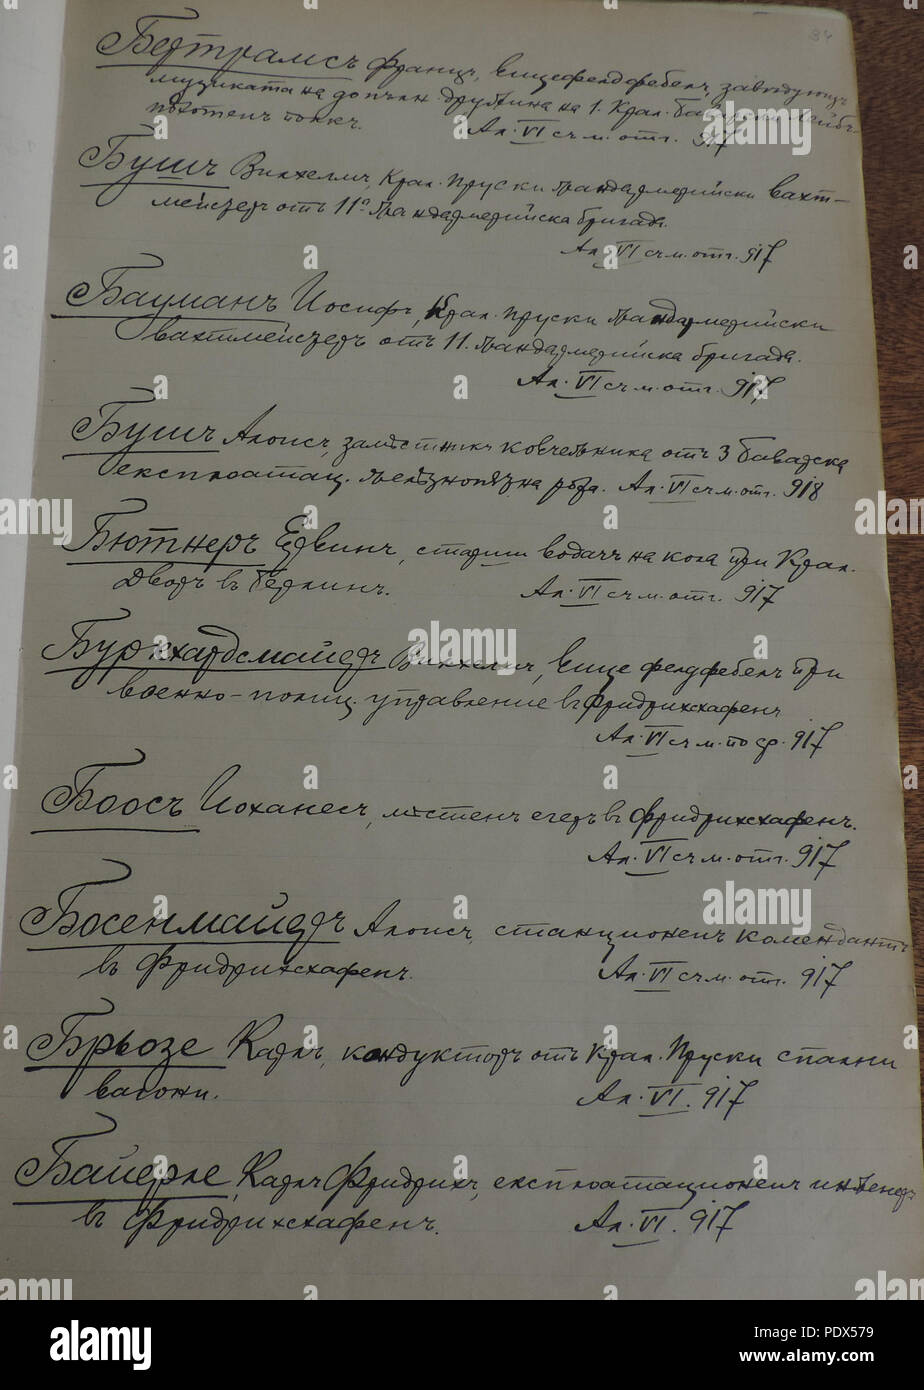 84
Бертрамсъ Францъ, Вицефелдфебелъ, завѣдующъ
музиката на допълн. дружина на 1. Крал. Баварски Лейбъ-
пѣхотенъ полкъ. Ал. VI съ м. отл. 917
Бушъ Вилхелмъ, Крал. Пруски жандармерийски вахт-
мейстеръ отъ 11а жандармерийска бригада.
Ал. VI съ м. отл. 917
Бауманъ Иосифъ, Крал. Пруски жандармерийски
вахтмейстеръ отъ 11. жандармерийска бригада.
Ал. VI съ м. отл. 917
Бушъ Алоисъ, замѣстникъ ковчежника отъ 3 Баварска
експлоатац. желѣзнопѫтна рота. Ал. VI съ м. отл. 918
Бютнеръ Едвинъ, старши водачъ на кола при Крал.
Дворъ въ Берлинъ. Ал. VI съ м. отл. 917
Буркхардсмайеръ Вилхелмъ, Вице фелдфебелъ при
военно-полиц. управление въ Фридрихсхафенъ
Ал. VI съ м. по ср. 917
Боосъ Иоханесъ, мѣстенъ егеръ въ Фридрихсхафенъ.
Ал. VI съ м. отл. 917
Босенмайеръ Алоисъ, станционенъ комендантъ
въ Фридрихсхафенъ. Ал. VI съ м. отл. 917
Брьозе Карлъ, кондукторъ отъ Крал. Пруски спални
вагони. Ал. VI. 917
Байерле, Карлъ Фридрихъ, експлоатационенъ инженеръ
въ Фридрихсхафенъ. Ал. VI. 917
alamy
Image ID: PDX579
www.alamy.com